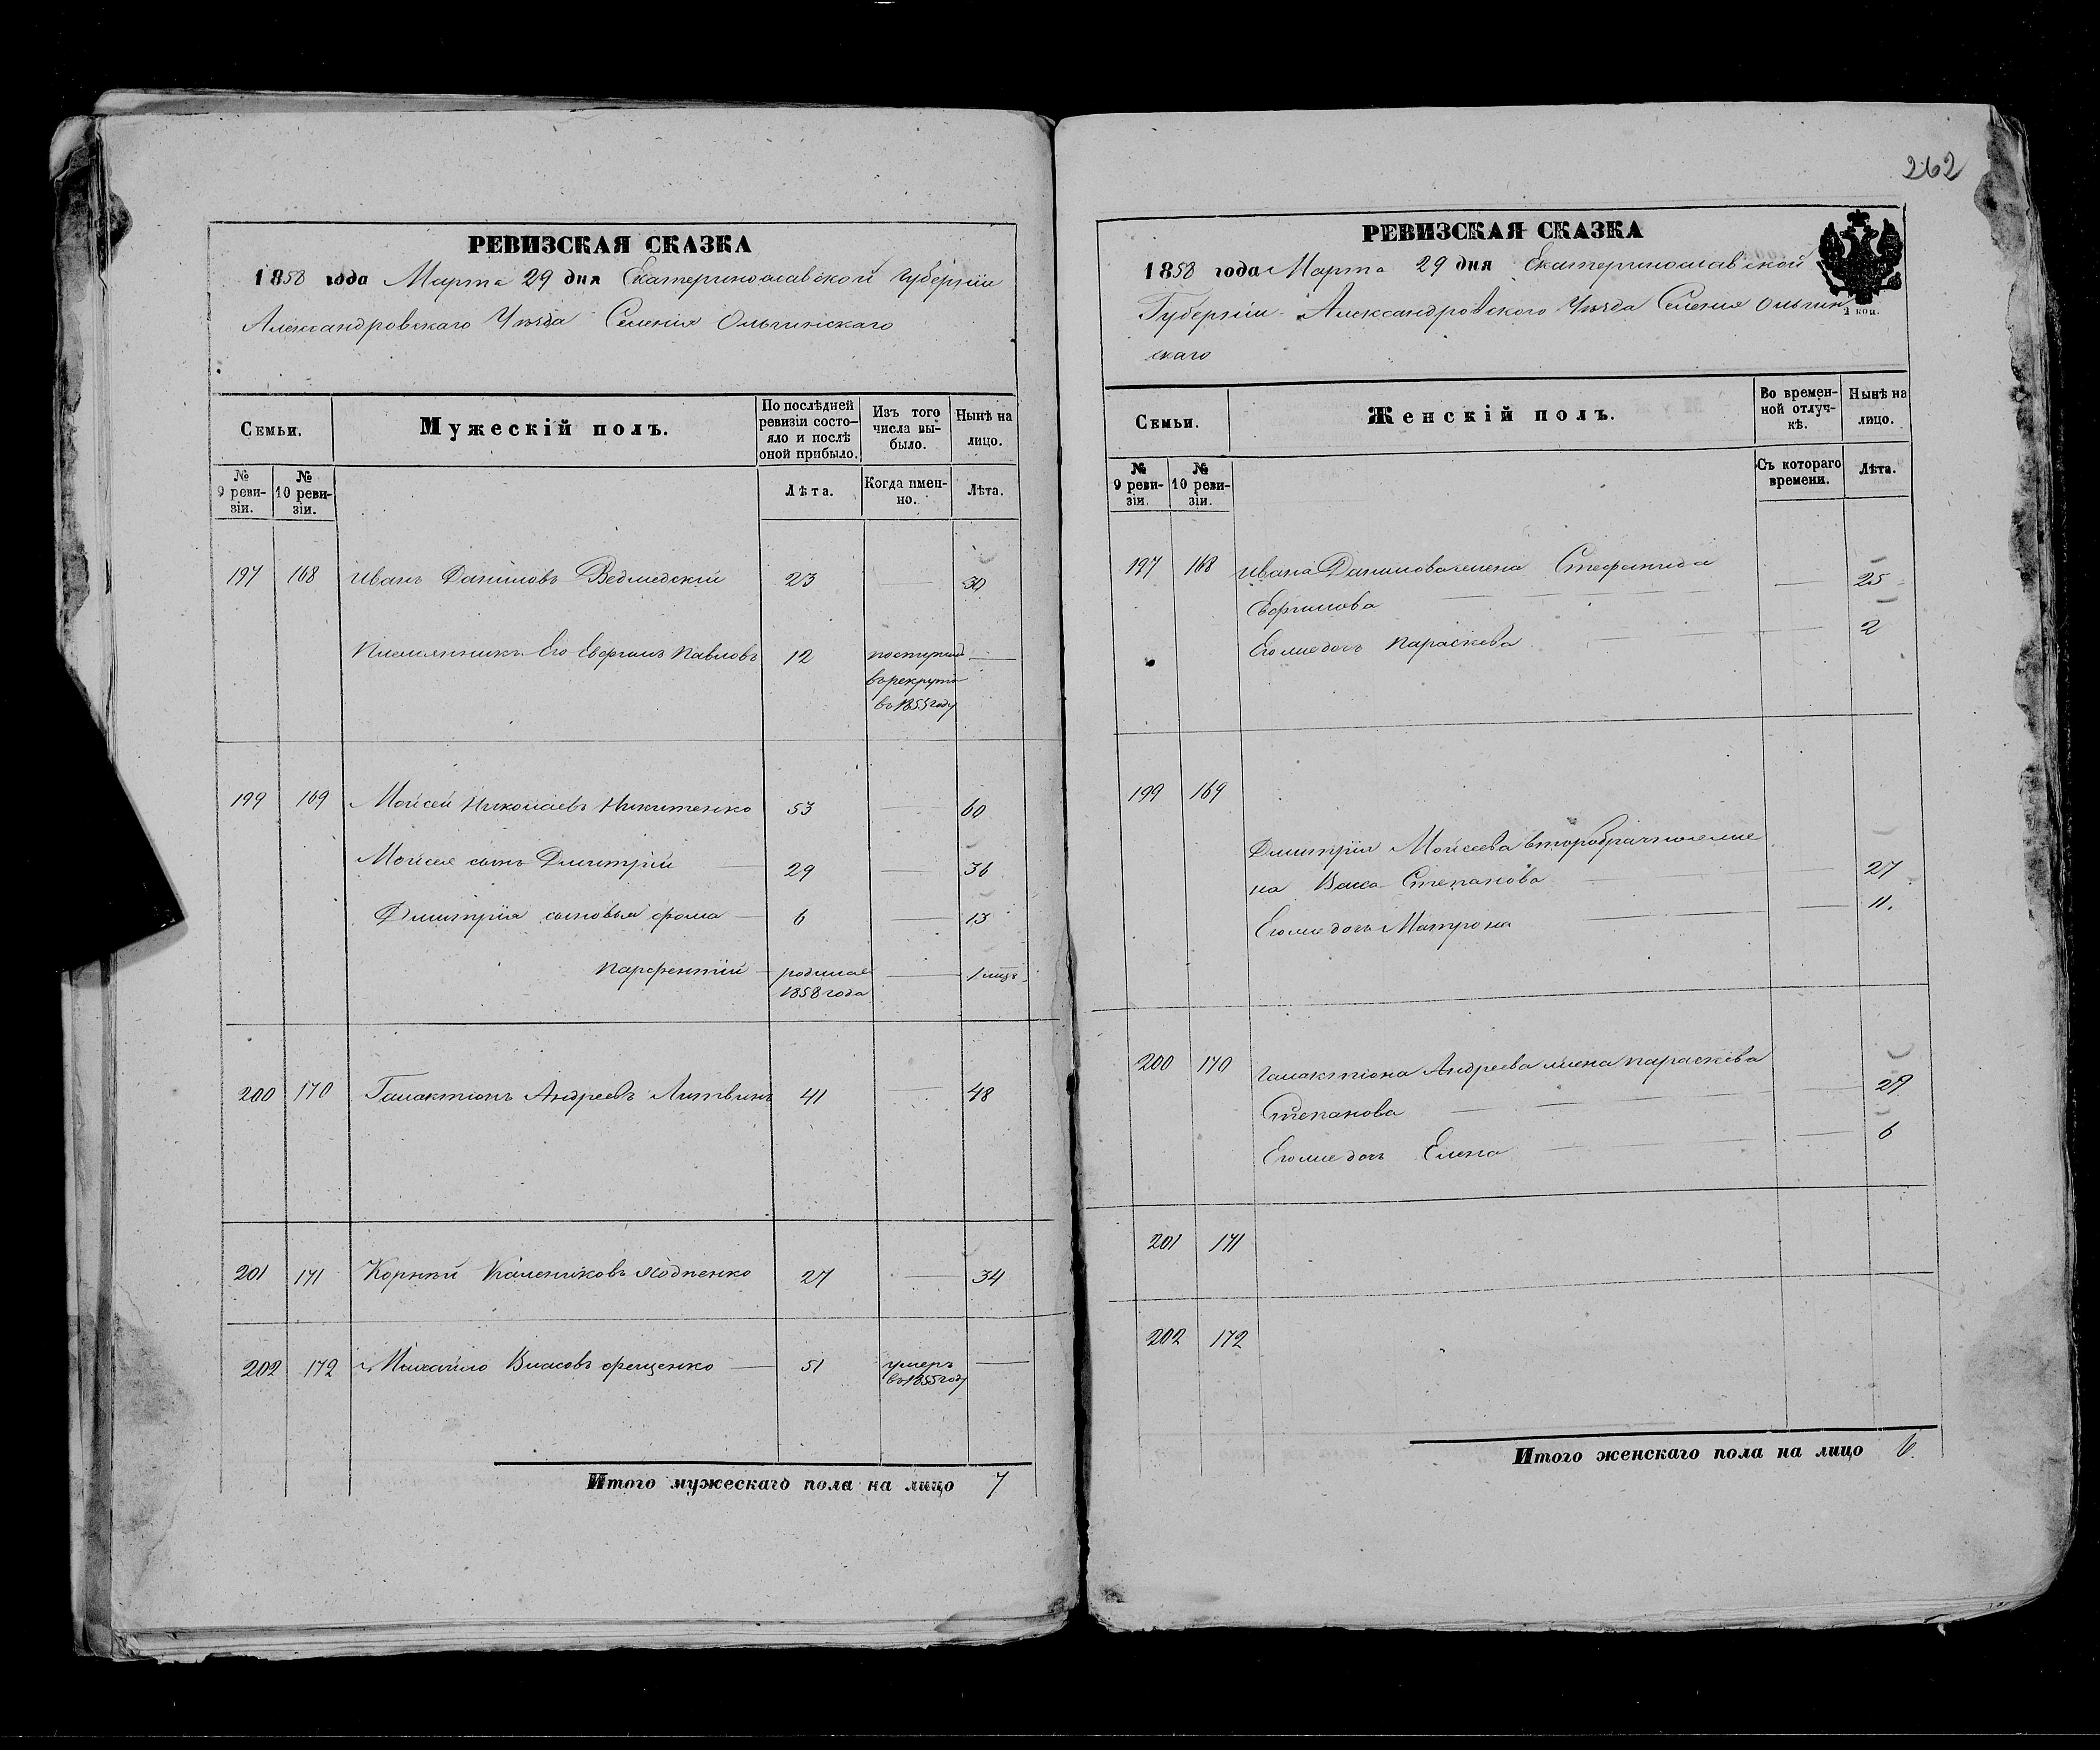 262
РЕВИЗСКАЯ СКАЗКА
1858 года Марта 29 дня Екатеринославской Губерніи
Александровскаго Уѣзда Селенія Ольгинскаго
Семьи.
Мужескій полъ.
По послѣдней ревизіи состояло и послѣ оной прибыло.
Изъ того числа выбыло.
Нынѣ на лицо.
№ 9 ревизіи.
№ 10 ревизіи.
Лѣта.
Когда именно.
Лѣта.
197 168 Иванъ Даниловъ Ведмедскій 23 — 30
Племянникъ Его Евфимъ Павловъ 12 поступилъ —
въ рекруты
въ 1855 году
199 169 Моисей Николаевъ Никитенко 53 — 60
Моисея сынъ Дмитрій 29 — 36
Дмитрія сыновья Фома — 6 — 13
Парфентій — родился — 1 мцъ
1858 года
200 170 Галактіонъ Андреевъ Литвинъ 41 — 48
201 171 Корнѣй Калениковъ 27 — 34
202 172 Михайло Власовъ Фещенко — 51 умеръ —
въ 1855 году
Итого мужескаго пола на лицо 7
РЕВИЗСКАЯ СКАЗКА
1858 года Марта 29 дня Екатеринославской
Губерніи Александровского Уѣзда Селенія Ольгин
скаго
2 коп.
Семьи.
Женскій полъ.
Во временной отлучкѣ.
Нынѣ на лицо.
№ 9 ревизіи.
№ 10 ревизіи.
Съ котораго времени.
Лѣта.
197 168 Ивана Данилова жена Стефанида
Евфимова — — 25
Его же дочь Параскева — — 2
199 169
Дмитрія Моисеева второбрачная же
на Васса Степанова — — 27
Его же дочь Матрона — — 11.
200 170 Галактіона Андреева жена Параскева
Степанова — — 29
Его же дочь Елена — — 6
201 171
202 172
Итого женскаго пола на лицо 6.